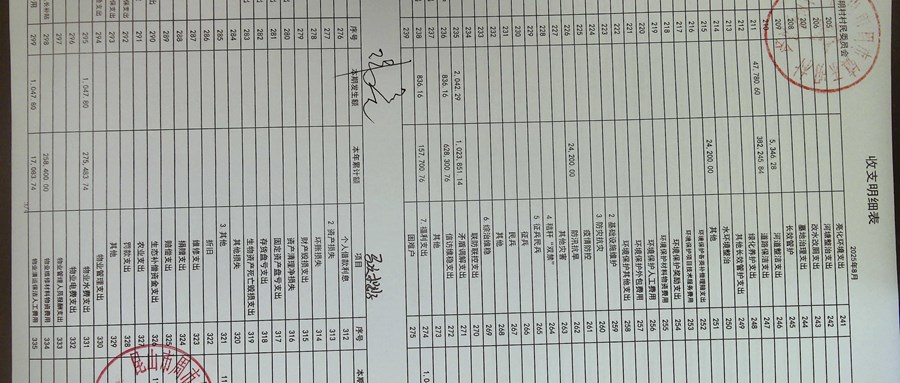 收支明细表
2025年8月
明村村民委员会
亮化环卫支出 241
205 河塘整治支出 242
206 改水改厕支出 243
207 墓地治理支出 244
208 长效管护 245
209 5,346.28 河道管护支出 246
210 382,245.84 道路保洁支出 247
211 47,780.60 绿化养护支出 248
212 其他长效管护支出 249
213 水环境整治 250
214 24,200.00 其他 251
215 252
216 环境保护项目技术服务费用 253
217 环境保护奖励支出 254
218 环境保护材料物资费用 255
219 环境保护人工费用 256
220 环境保护外包费用 257
221 环境保护其他支出 258
222 2.基础设施维护 259
223 3.防灾抗灾 260
224 疫情防控 261
225 24,200.00 防汛抗旱 262
226 其他灾害 263
227 4.秸秆“双禁” 264
228 5.征兵民兵 265
229 征兵 266
230 民兵 267
231 其他 268
232 6.综治维稳 269
233 联防联控支出 270
235 2,042.29 1,023,851.14 矛盾调解支出 271
236 836.16 628,300.76 信访维稳支出 272
237 其他 273
238 836.16 157,700.76 7.福利支出 274
239 困难户 275
序号 本期发生额 本年累计额 项目 序号
276 个人借款利息 312
277 2.资产损失 313
278 坏账损失 314
279 财产毁损支出 315
280 资产清理净损失 316
281 固定资产盘亏支出 317
282 存货盘亏支出 318
283 生物资产死亡毁损支出 319
284 其他损失 320
285 3.其他 321
286 折旧 322
287 维修支出 323
288 捐赠支出 324
289 赔偿支出 325
290 生态补偿资金支出 326
291 农业支出 327
292 罚款支出 328
293 其他 329
294 物业管理支出 330
295 1,047.80 275,483.74 物业水费支出 331
296 物业电费支出 332
297 物业管理人员报酬支出 333
298 258,400.00 物业维修材料物资费用 334
299 1,047.80 17,083.74 物业清运保洁人工费用 335
昆山市周市